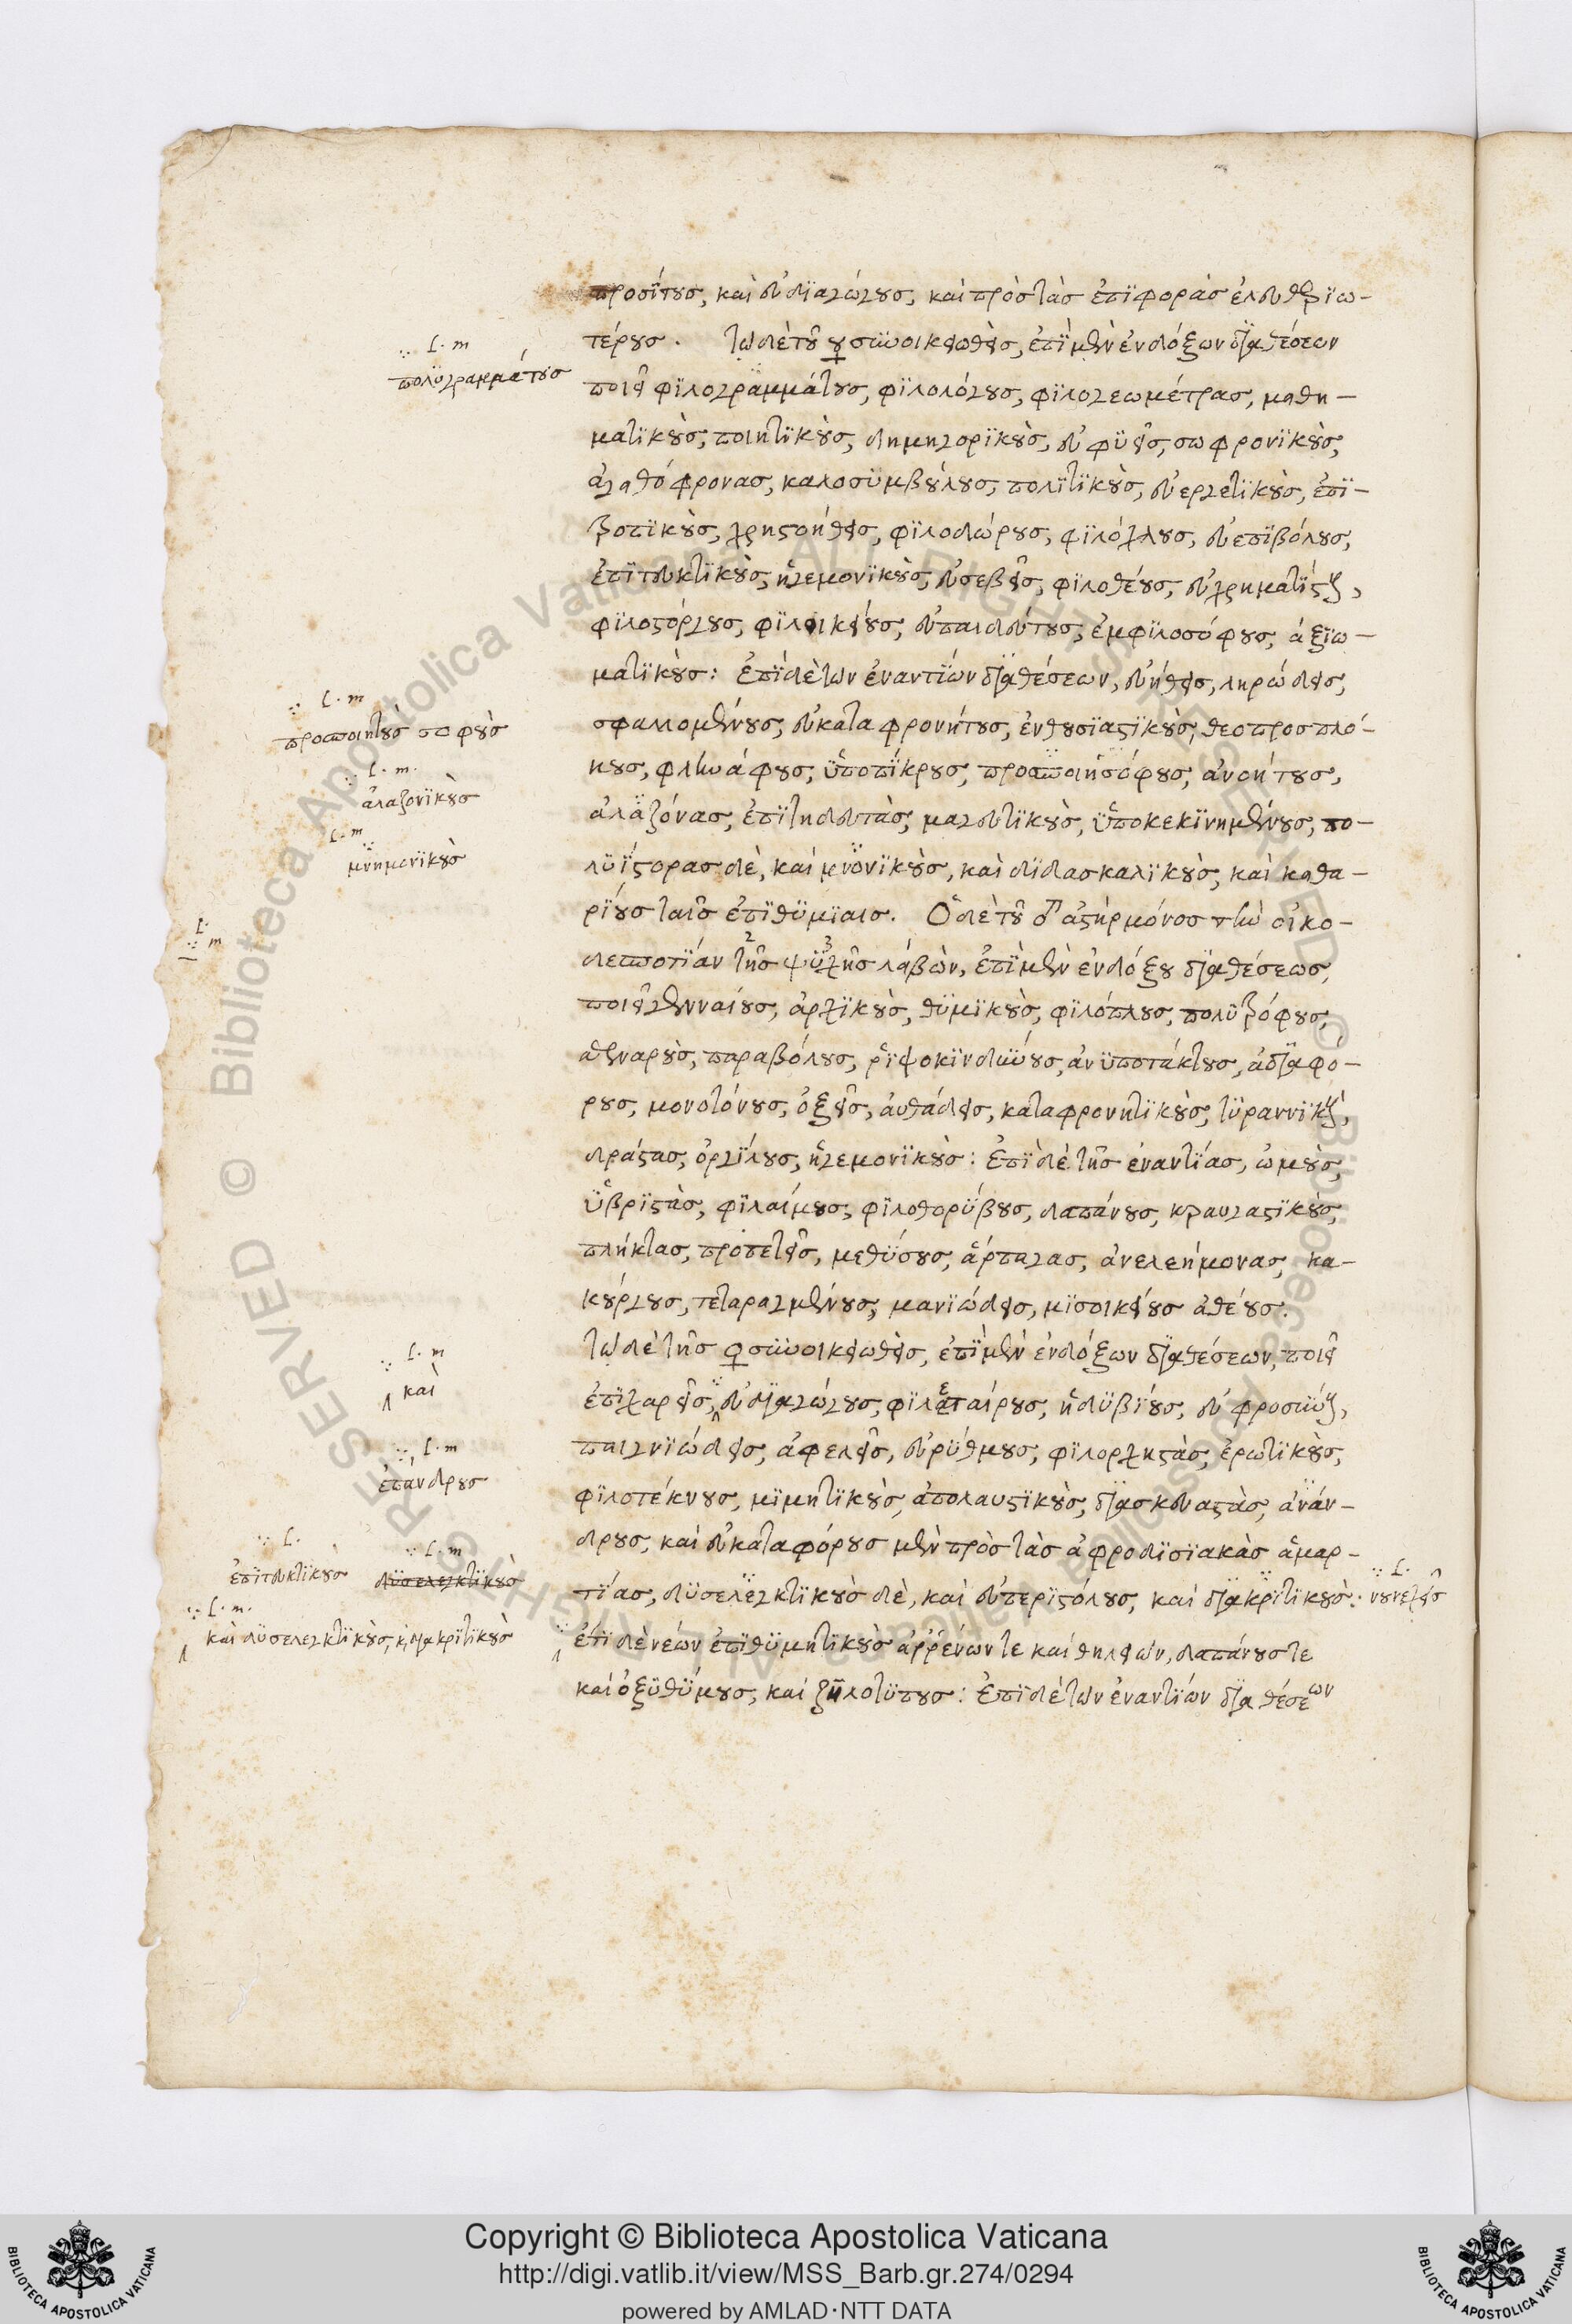 προσίτους, καὶ εὐδιαγώγους, καὶ πρὸς τὰς ἐπιφορὰς ἐλευθεριω-
τέρους. Τῷ δὲ τοῦ ☿ συνοικειωθεὶς, ἐπὶ μὲν ἐνδόξων διαθέσεων
ποιεῖ φιλογραμμάτους, φιλολόγους, φιλογεωμέτρας, μαθη-
ματικοὺς, ποιητικοὺς, δημηγορικοὺς, εὐφυεῖς, σωφρονικοὺς,
ἀγαθόφρονας, καλοσυμβούλους, πολιτικοὺς, εὐεργετικοὺς, ἐπι-
τροπικοὺς, χρηστοήθεις, φιλοδώρους, φιλόχλους, εὐεπιβόλους,
ἐπιτευκτικοὺς, ἡγεμονικοὺς, εὐσεβεῖς, φιλοθέους, εὐχρηματίστους,
φιλοστόργους, φιλοικείους, εὐπαιδεύτους, ἐμφιλοσόφους, ἀξιω-
ματικούς: ἐπὶ δὲ τῶν ἐναντίων διαθέσεων, εὐήθεις, ληρώδεις,
σφαλλομένους, εὐκαταφρονήτους, ἐνθουσιαστικοὺς, θεοπροσπλό-
κους, φληνάφους, ὑποπίκρους, προσποιησόφους, ἀνοήτους,
ἀλαζόνας, ἐπιτηδευτὰς, μαγευτικοὺς, ὑποκεκινημένους, πο-
λυΐστορας δὲ, καὶ μνημονικοὺς, καὶ διδασκαλικοὺς, καὶ καθα-
ρίους ταῖς ἐπιθυμίαις. Ὁ δὲ τοῦ ♂ ἀστὴρ μόνος τὴν οἰκο-
δεσποτίαν τῆς ψυχῆς λαβὼν, ἐπὶ μὲν ἐνδόξου διαθέσεως,
ποιεῖ γενναίους, ἀρχικοὺς, θυμικοὺς, φιλόπλους, πολυτρόφους,
σθεναροὺς, παραβόλους, ῥιψοκινδύνους, ἀνυποτάκτους, ἀδιαφό-
ρους, μονοτόνους, ὀξεῖς, αὐθάδεις, καταφρονητικοὺς, τυραννικοὺς,
δράστας, ὀργίλους, ἡγεμονικούς: ἐπὶ δὲ τῆς ἐναντίας, ὠμοὺς,
ὑβριστὰς, φιλαίμους, φιλοθορύβους, δαπάνους, κραυγαστικοὺς,
πλήκτας, προπετεῖς, μεθύσους, ἅρπαγας, ἀνελεήμονας, κα-
κούργους, τεταραγμένους, μανιώδεις, μισοικείους ἀθέους.
Τῷ δὲ τῆς ♀ συνοικειωθεὶς, ἐπὶ μὲν ἐνδόξων διαθέσεων, ποιεῖ
ἐπιχαρεῖς, εὐδιαγώγους, φιλεταίρους, ἡδυβίους, εὐφροσύνους,
παιγνιώδεις, ἀφελεῖς, εὐρύθμους, φιλορχηστὰς, ἐρωτικοὺς,
φιλοτέκνους, μιμητικοὺς, ἀπολαυστικοὺς, διασκευαστὰς, ἀνάν-
δρους, καὶ εὐκαταφόρους μὲν πρὸς τὰς ἀφροδισιακὰς ἁμαρ-
τίας, δυσελεγκτικοὺς δὲ, καὶ εὐπεριστόλους, καὶ διακριτικούς:
ἐπὶ δὲ νέων ἐπιθυμητικοὺς ἀρρένων τε καὶ θηλειῶν, δαπάνους τε
καὶ ὀξυθύμους, καὶ ζηλοτύπους: Ἐπὶ δὲ τῶν ἐναντίων διαθέσεων
L. m
πολυγραμμάτους
L. m
προσποιητοὺς σοφοὺς
L. m.
ἀλαζονικοὺς
L. m
μνημονικοὺς
L.
m
L. m
καὶ
L. m
ἐπάνδρους
L.
ἐπιτευκτικοὺς
L. m
δυσελεγκτικοὺς
L. m.
καὶ δυσελεγκτικοὺς, κ διακριτικοὺς
L.
νουνεχεῖς
© Biblioteca Apostolica Vaticana ALL RIGHTS RESERVED
Copyright © Biblioteca Apostolica Vaticana
http://digi.vatlib.it/view/MSS_Barb.gr.274/0294
powered by AMLAD·NTT DATA
BIBLIOTECA APOSTOLICA VATICANA
BIBLIOTECA APOSTOLICA VATICANA